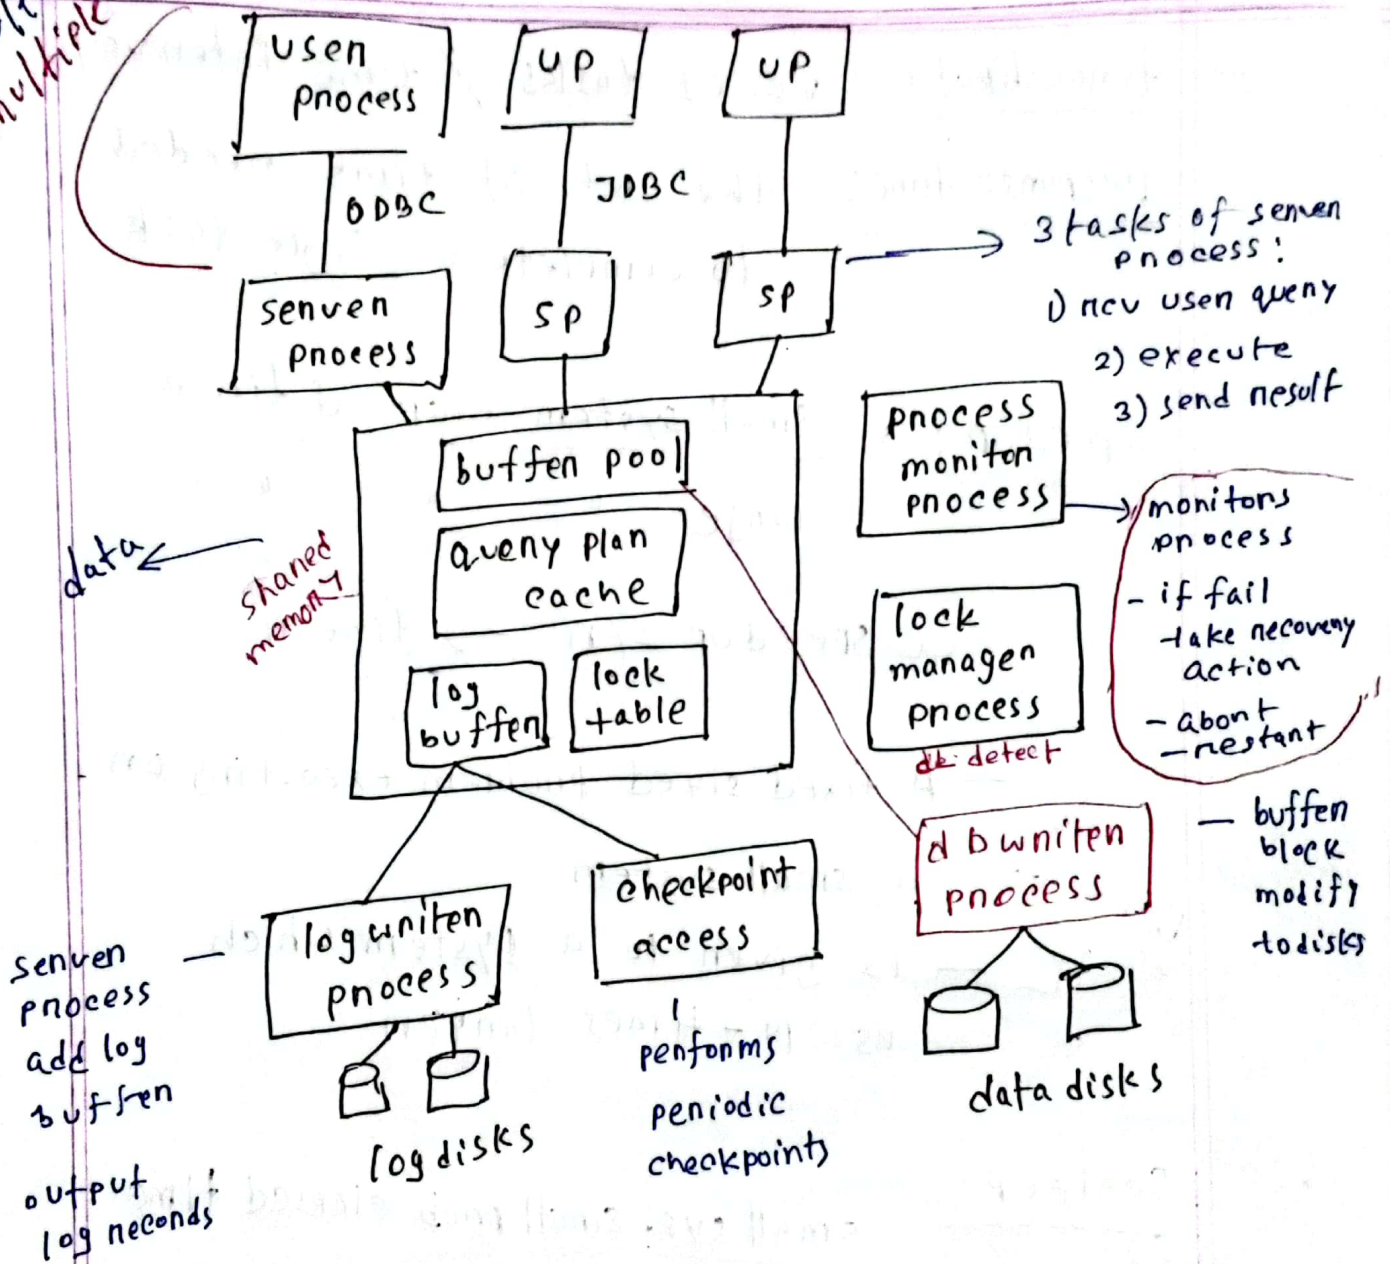 multiple
user
process
UP
UP
ODBC
JDBC
server
process
SP
SP
3 tasks of server
process:
1) rcv user query
2) execute
3) send result
buffer pool
query plan
cache
log
buffer
lock
table
shared
memory
data
process
monitor
process
monitors
process
- if fail
take recovery
action
- abort
- restart
lock
manager
process
detect
dbwriter
process
- buffer
block
modify
to disks
data disks
log writer
process
log disks
server -
process
add log
buffer
output
log records
checkpoint
access
performs
periodic
checkpoints